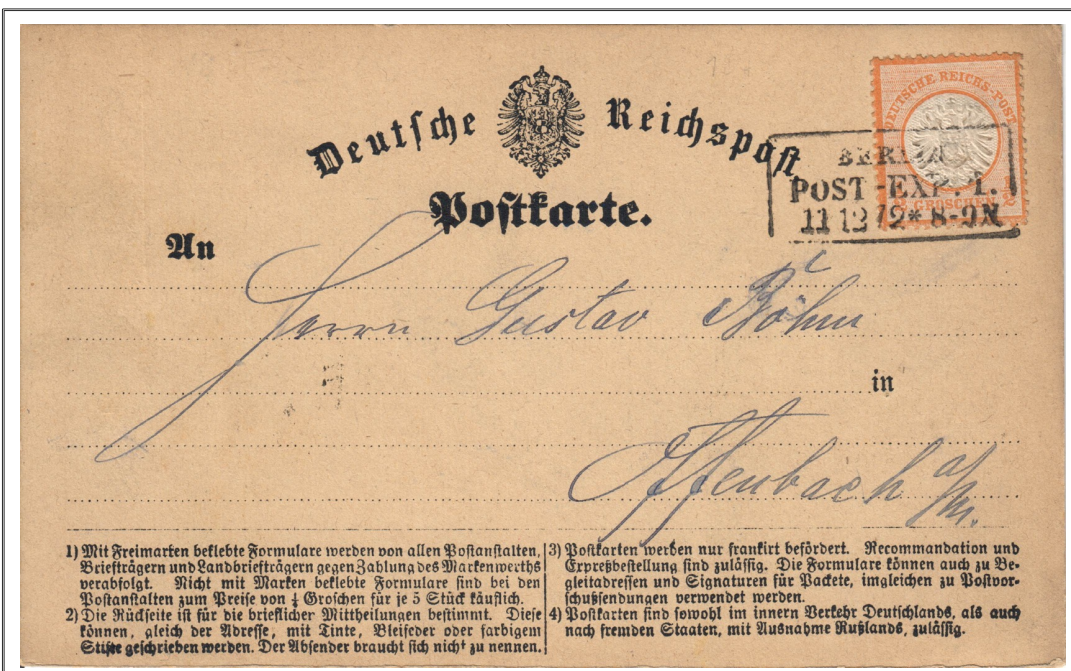 Deutsche Reichspost
Postkarte.
DEUTSCHE REICHS-POST
½ GROSCHEN ½
BERLIN
POST-EXP. 1.
11 12 72 * 8-9N
An
Herrn Gustav Böhm
in
Offenbach a/M.
1) Mit Freimarken beklebte Formulare werden von allen Postanstalten,
Briefträgern und Landbriefträgern gegen Zahlung des Markenwerths
verabfolgt. Nicht mit Marken beklebte Formulare sind bei den
Postanstalten zum Preise von ¼ Groschen für je 5 Stück käuflich.
2) Die Rückseite ist für die brieflicher Mittheilungen bestimmt. Diese
können, gleich der Adresse, mit Tinte, Bleifeder oder farbigem
Stifte geschrieben werden. Der Absender braucht sich nicht zu nennen.
3) Postkarten werden nur frankirt befördert. Recommandation und
Expreßbestellung sind zulässig. Die Formulare können auch zu Be-
gleitadressen und Signaturen für Packete, imgleichen zu Postvor-
schußsendungen verwendet werden.
4) Postkarten sind sowohl im innern Verkehr Deutschlands, als auch
nach fremden Staaten, mit Ausnahme Rußlands, zulässig.